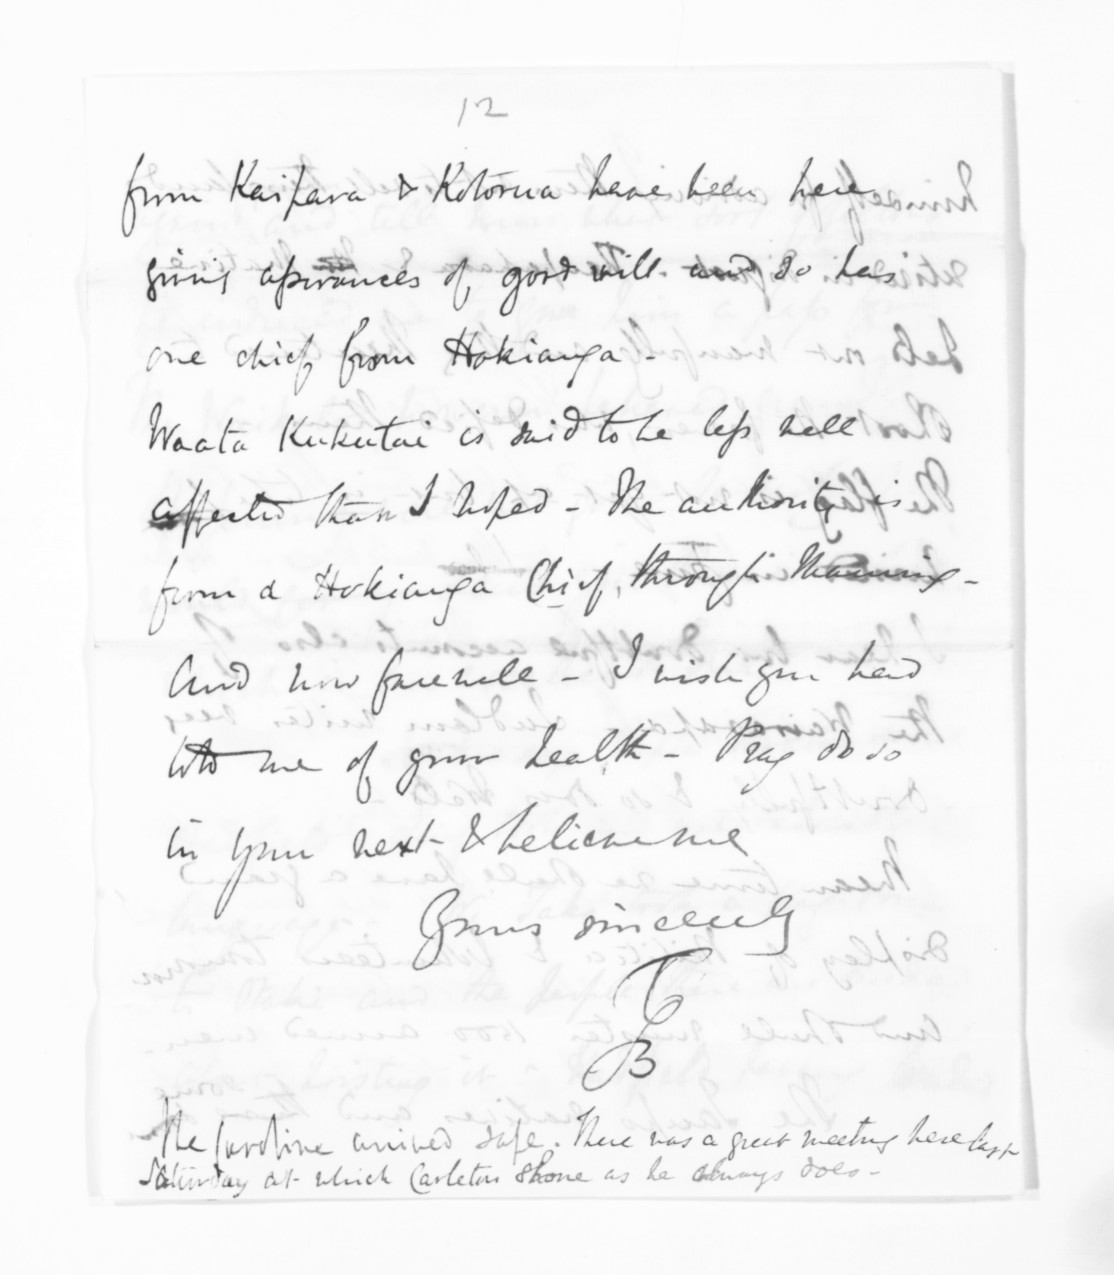 12
from Kaipara & Rotorua have been here
giving assurances of good will - and so has
one chief from Hokianga -
Waata Kukutai is said to be less well
affected than I hoped - The authority is
from a Hokianga Chief, through Maning -
And now farewell - I wish you had
told me of your health - Pray do so
in your next - & believe me
Yours sincerely
TGB
The Caroline arrived safe. There was a great meeting here last
Saturday at which Carleton shone as he always does -